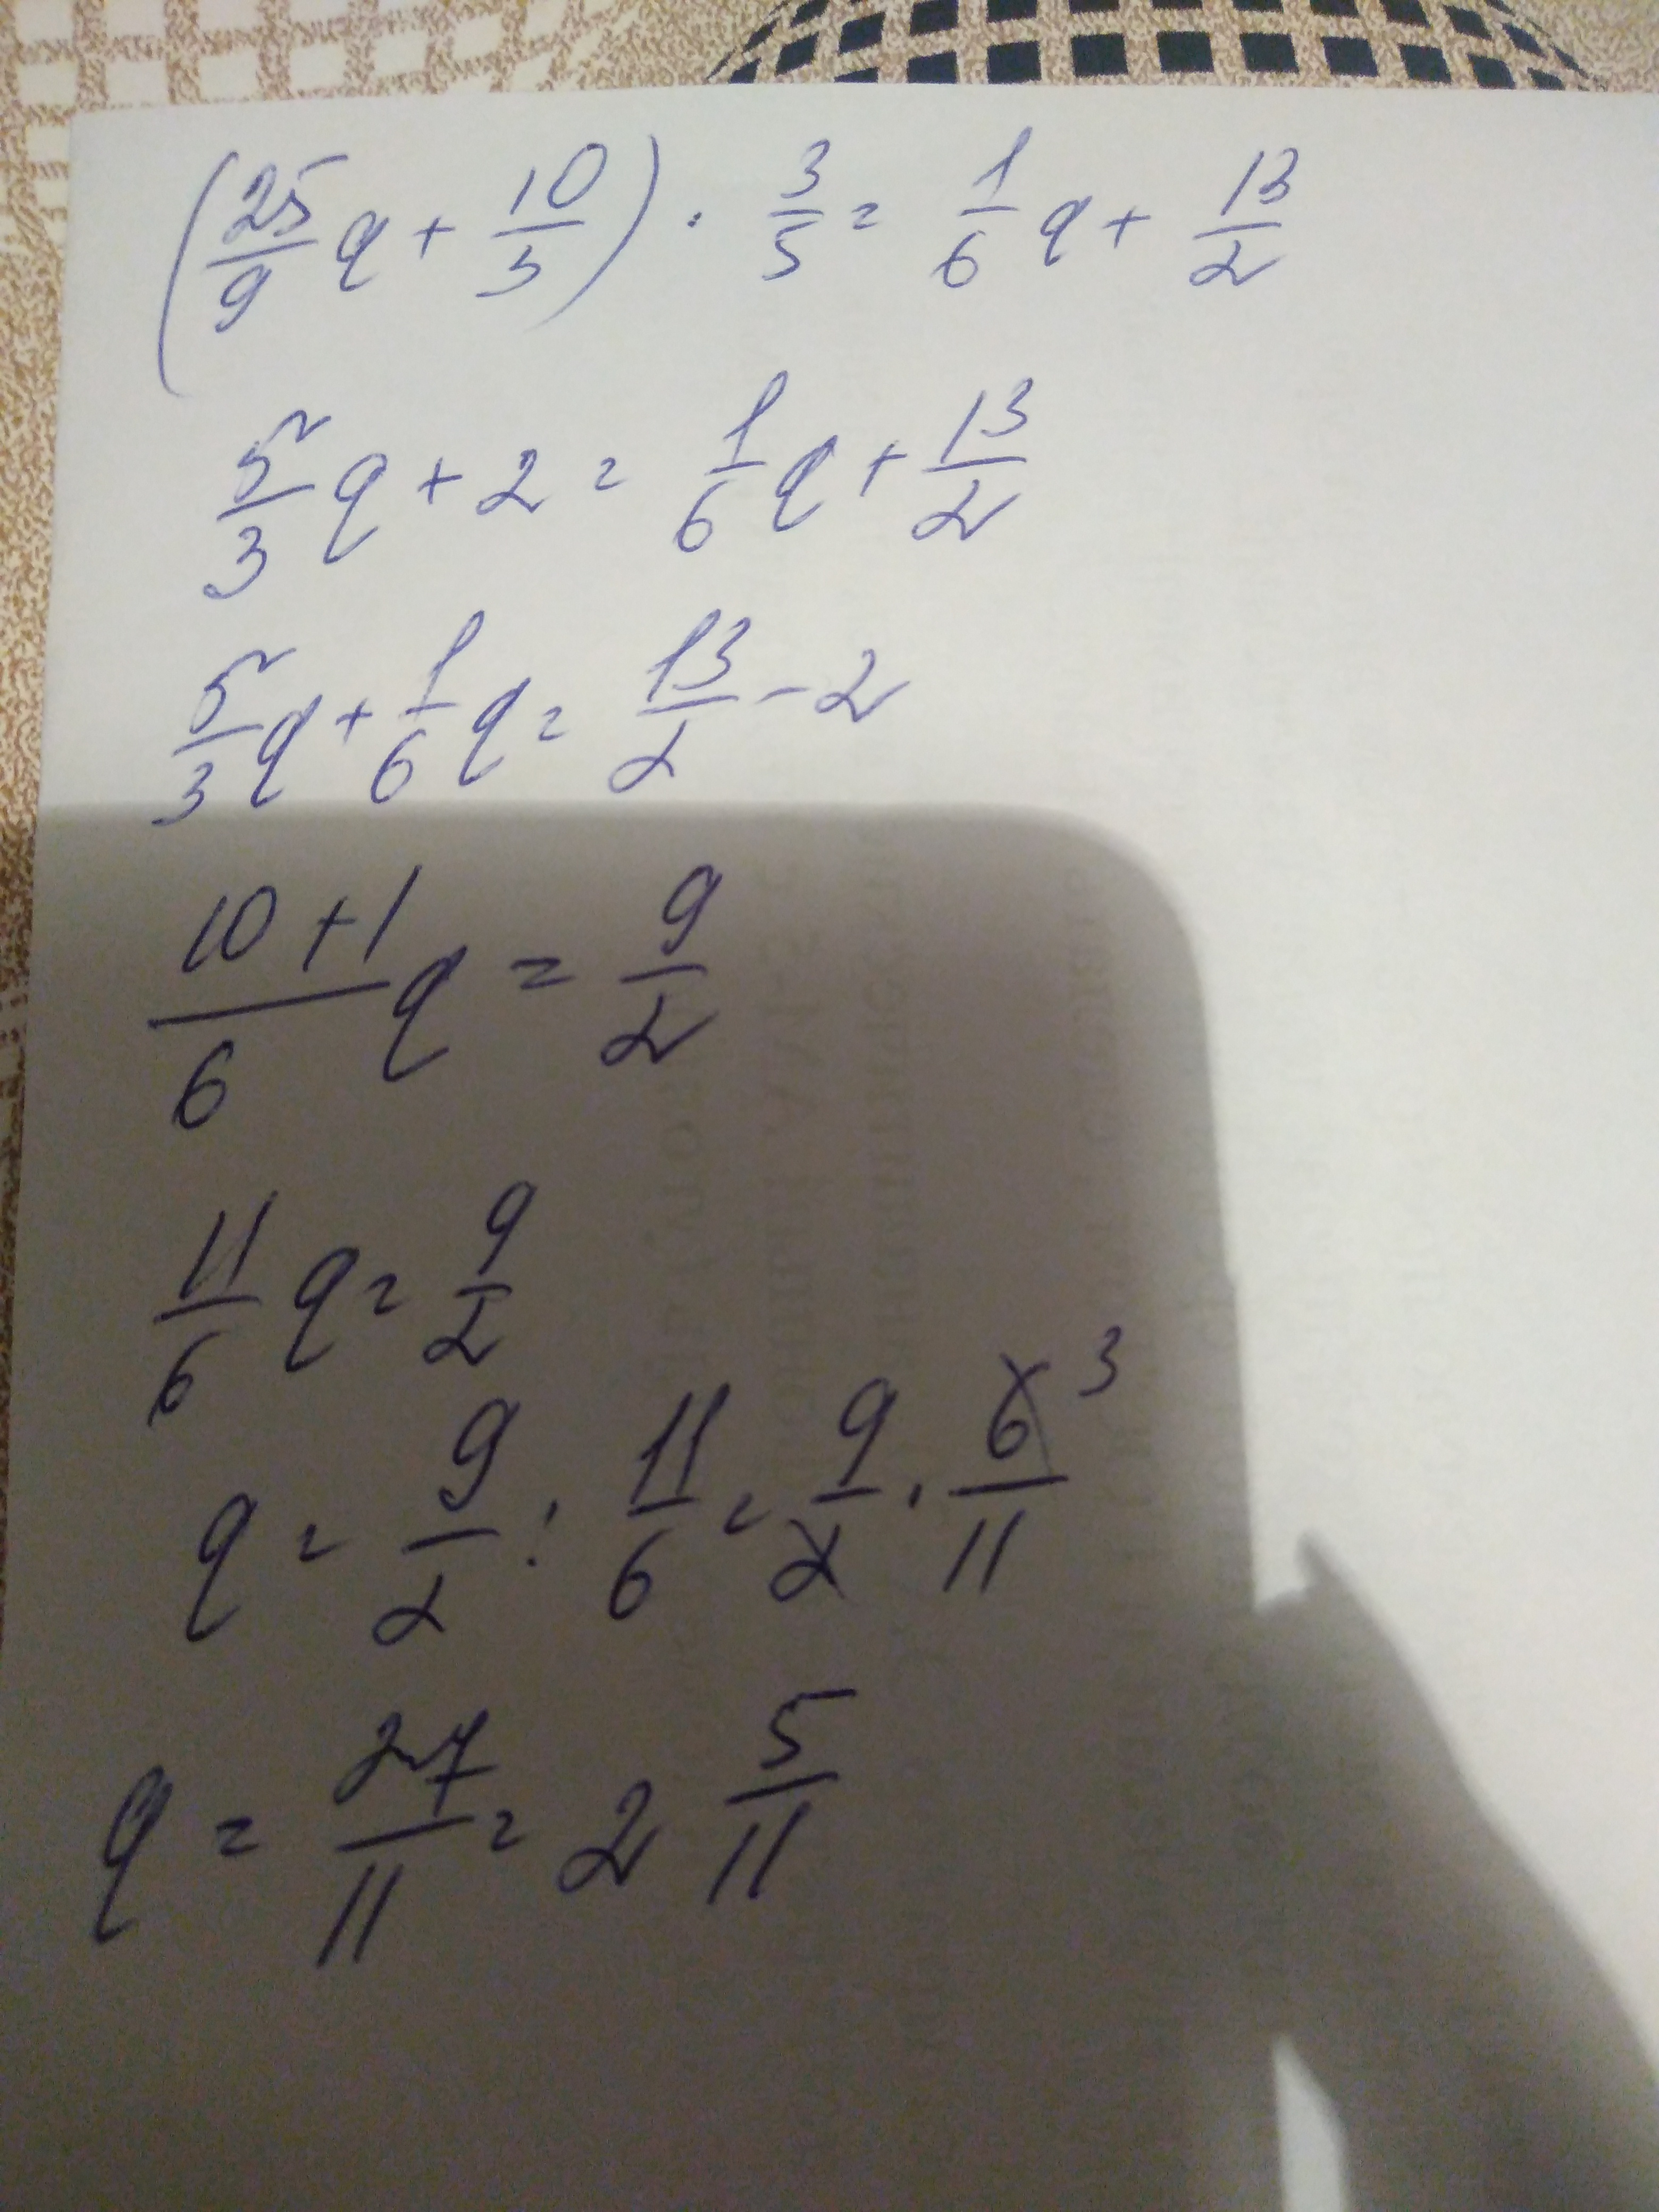 (25/9 q + 10/3) · 3/5 = 1/6 q + 13/2
5/3 q + 2 = 1/6 q + 13/2
5/3 q + 1/6 q = 13/2 - 2
10+1/6 q = 9/2
11/6 q = 9/2
q = 9/2 : 11/6 = 9/2 · 6/11 3
q = 27/11 = 2 5/11